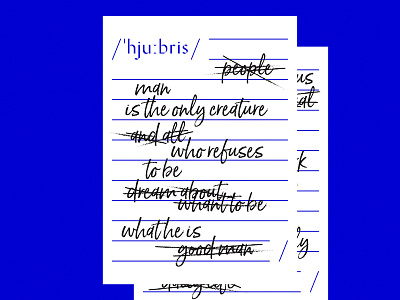 /ˈhju:bris/
people
man
is the only creature
and all
who refuses
to be
dream about
whant to be
what he is
good man /
us
al
k
y
/